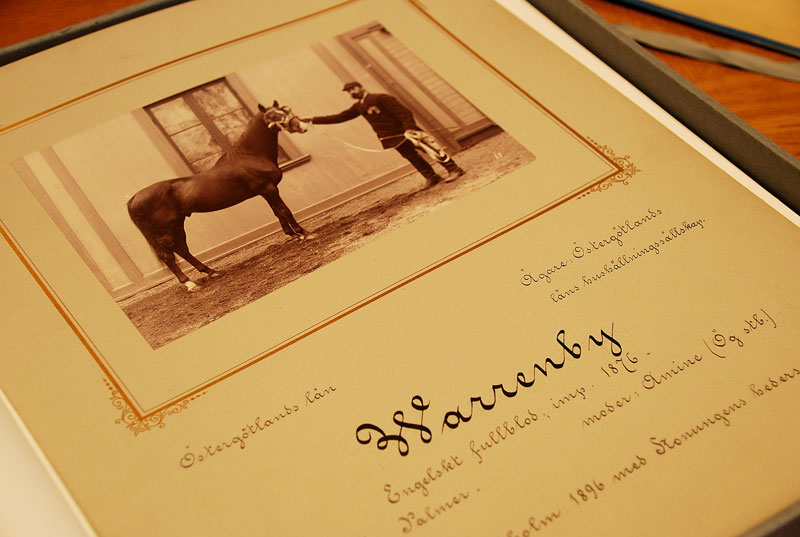 Ägare: Östergötlands
läns hushållningssällskap.
Östergötlands län
Warrenby
Engelskt fullblod, imp. 1876.
Palmer. moder: Amine (Ög stb.)
holm 1896 med Konungens heders